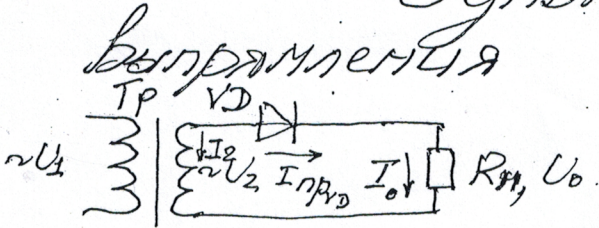 выпрямления
Тр VD
~U1 I2 ~U2 IпрVD I0 Rн, U0